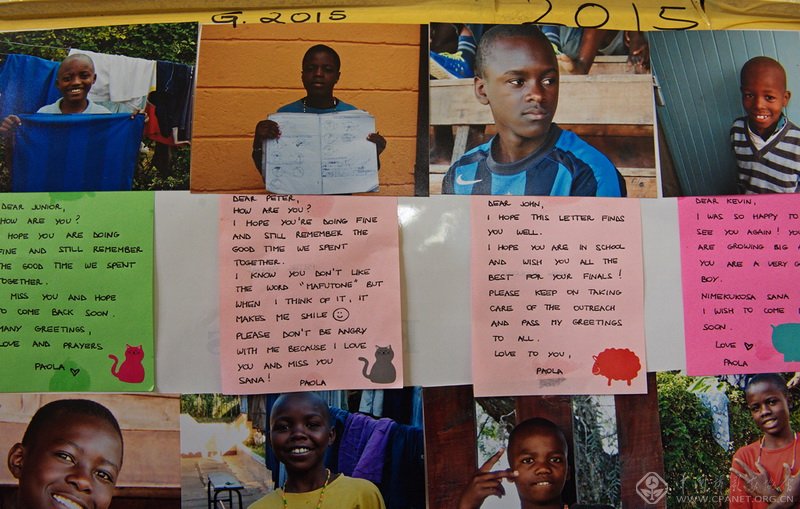 G. 2015
2015
DEAR JUNIOR,
HOW ARE YOU?
HOPE YOU ARE DOING
FINE AND STILL REMEMBER
THE GOOD TIME WE SPENT
TOGETHER.
MISS YOU AND HOPE
TO COME BACK SOON.
MANY GREETINGS,
LOVE AND PRAYERS
PAOLA
DEAR PETER,
HOW ARE YOU?
I HOPE YOU'RE DOING FINE
AND STILL REMEMBER THE
GOOD TIME WE SPENT
TOGETHER.
I KNOW YOU DON'T LIKE
THE WORD "MAFUTONE" BUT
WHEN I THINK OF IT, IT
MAKES ME SMILE
PLEASE DON'T BE ANGRY
WITH ME BECAUSE I LOVE
YOU AND MISS YOU
SANA! PAOLA
DEAR JOHN,
I HOPE THIS LETTER FINDS
YOU WELL.
I HOPE YOU ARE IN SCHOOL
AND WISH YOU ALL THE
BEST FOR YOUR FINALS!
PLEASE KEEP ON TAKING
CARE OF THE OUTREACH
AND PASS MY GREETINGS
TO ALL.
LOVE TO YOU,
PAOLA
DEAR KEVIN,
I WAS SO HAPPY TO
SEE YOU AGAIN! YOU
ARE GROWING BIG A
YOU ARE A VERY G
BOY.
NIMEKUKOSA SANA
I WISH TO COME
SOON.
LOVE
PAOLA
WWW.CPANET.ORG.CN